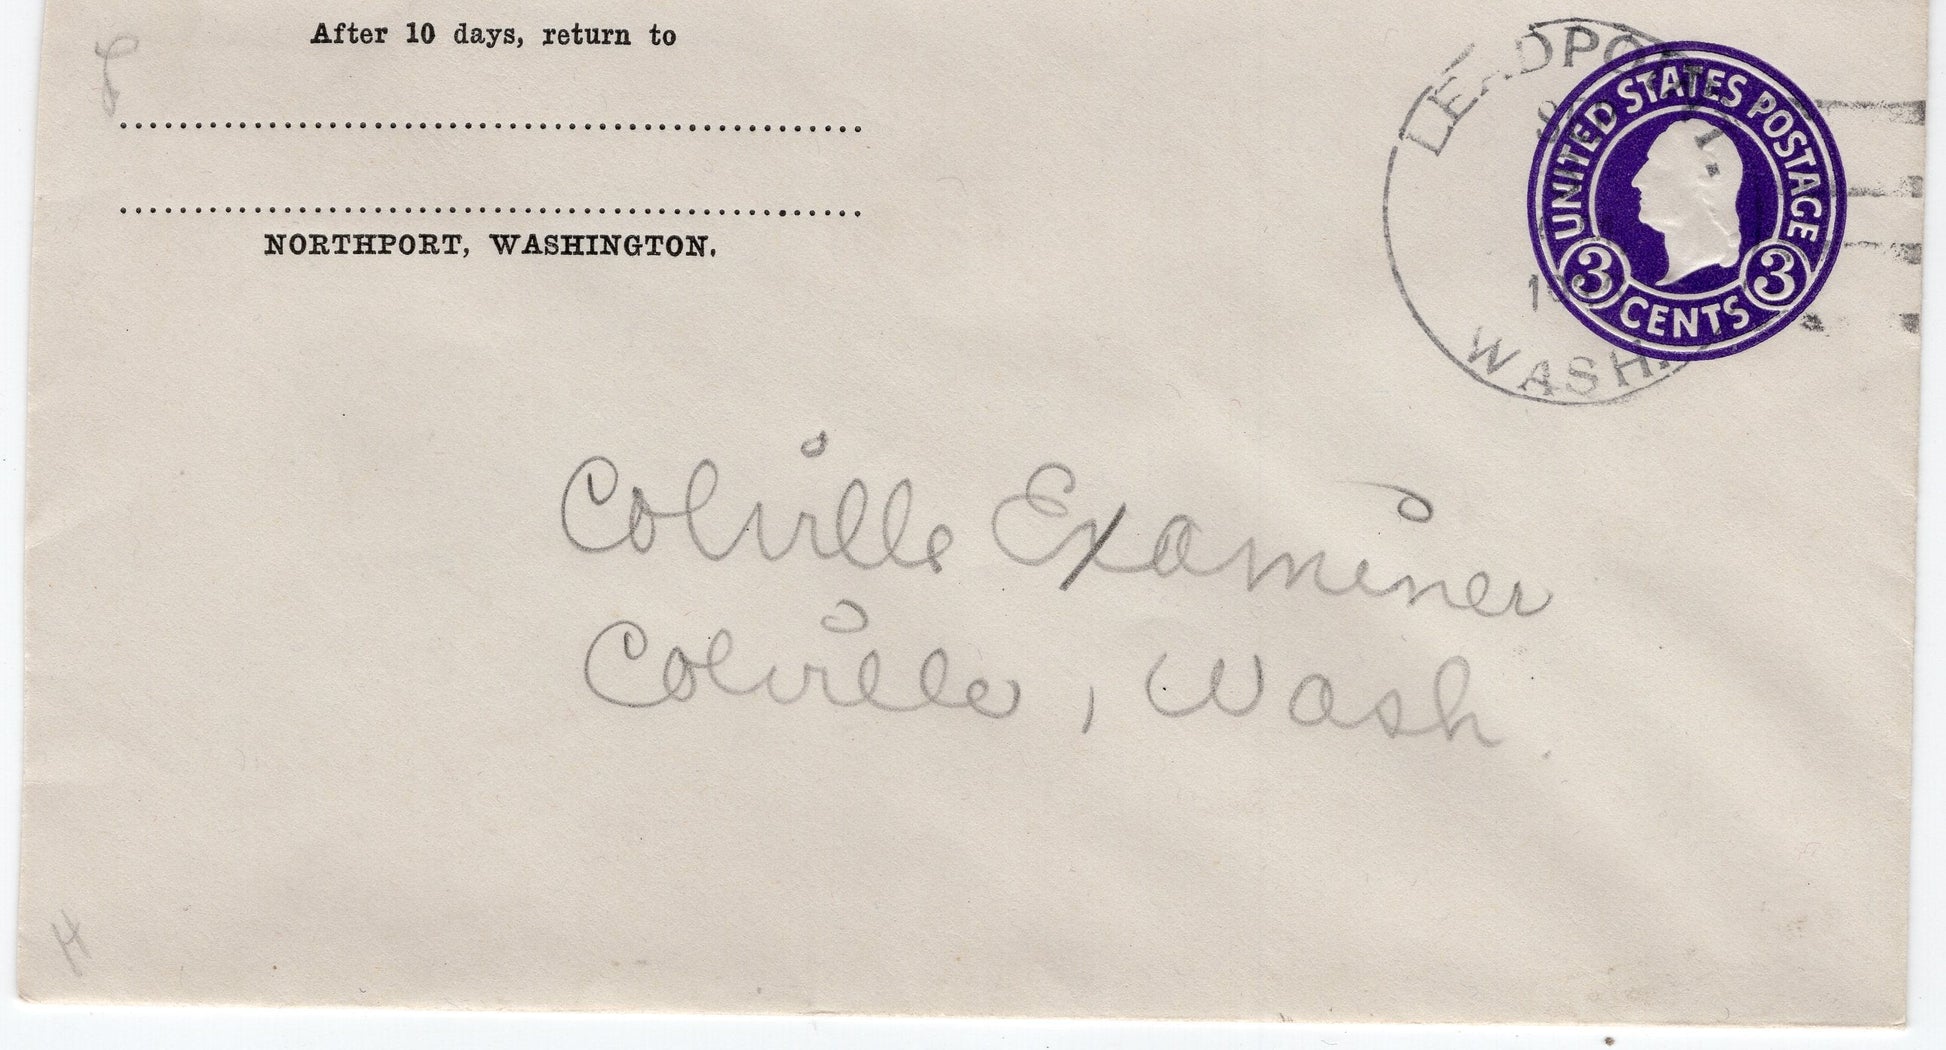 After 10 days, return to
NORTHPORT, WASHINGTON.
LEADPOINT
WASH.
UNITED STATES POSTAGE
3 CENTS 3
Colville Examiner
Colville, Wash.
H